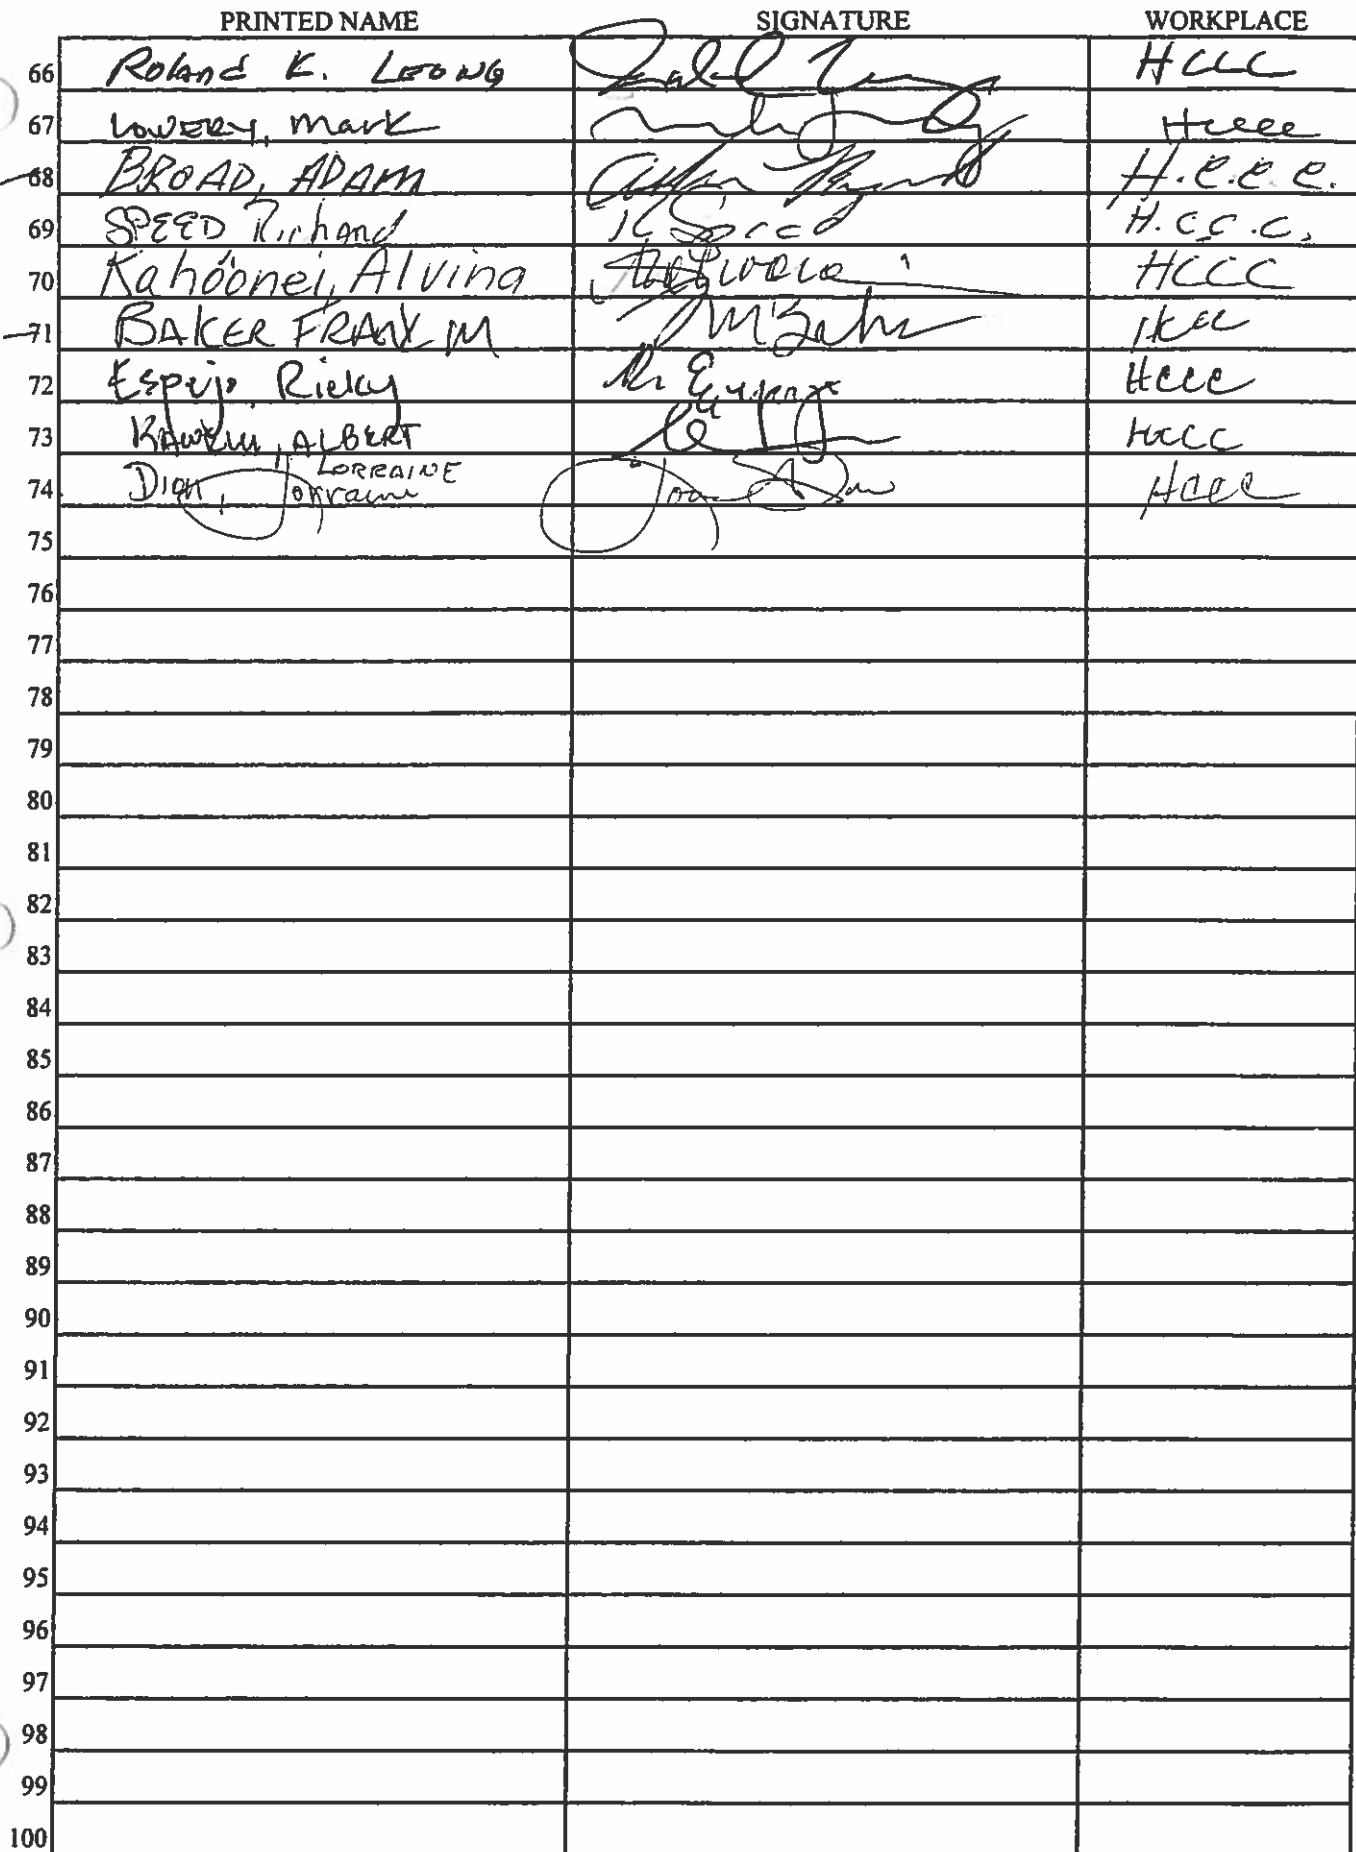 PRINTED NAME SIGNATURE WORKPLACE
66 Roland K. LEONG HCCC
67 LOWERY, Mark HCCC
68 BROAD, ADAM H.C.C.C.
69 SPEED Richard R Speed H.C.C.C.
70 Kahoonei, Alvina HCCC
71 BAKER FRANK M M Baker HCCC
72 Espejo Ricky HCCC
73 ALBERT HCCC
74 Dion, Lorraine LORRAINE HCCC
75
76
77
78
79
80
81
82
83
84
85
86
87
88
89
90
91
92
93
94
95
96
97
98
99
100